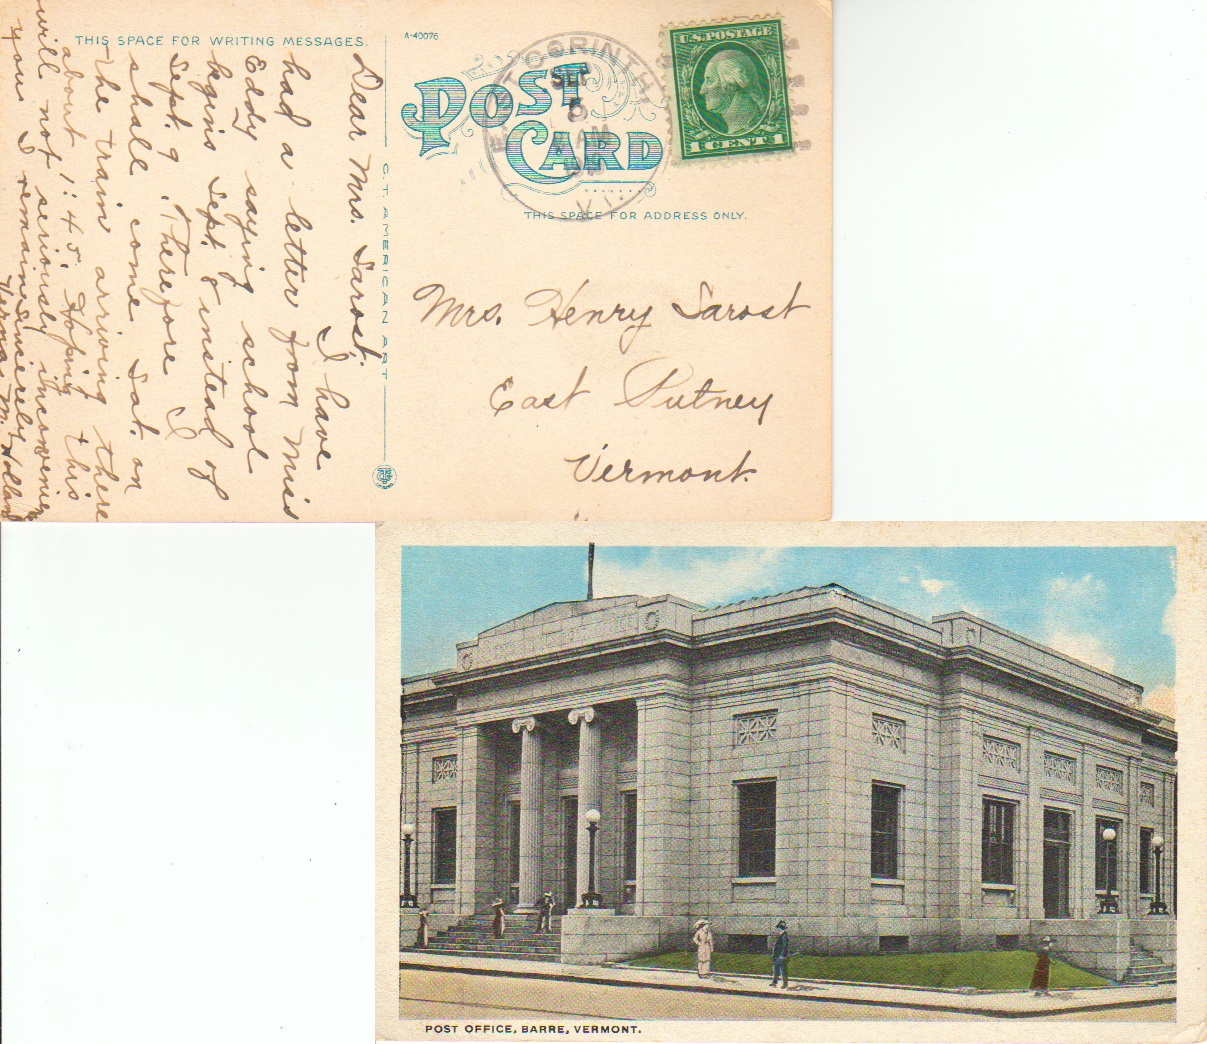 THIS SPACE FOR WRITING MESSAGES.
A-40076
POST
CARD
THIS SPACE FOR ADDRESS ONLY.
EAST CORINTH
SEP
5
AM
VT.
U.S. POSTAGE
1 CENT 1
C.T. AMERICAN ART
Dear Mrs. Sarost.
I have
had a letter from Miss
Eddy saying school
begins Sept. 8 instead of
Sept. 9. Therefore I
shall come Sat. on
the train arriving there
about 1:45. Hoping this
will not seriously inconvenience
you I remain
Sincerely
Verna M. Holland
Mrs. Henry Sarost
East Putney
Vermont.
POST OFFICE, BARRE, VERMONT.